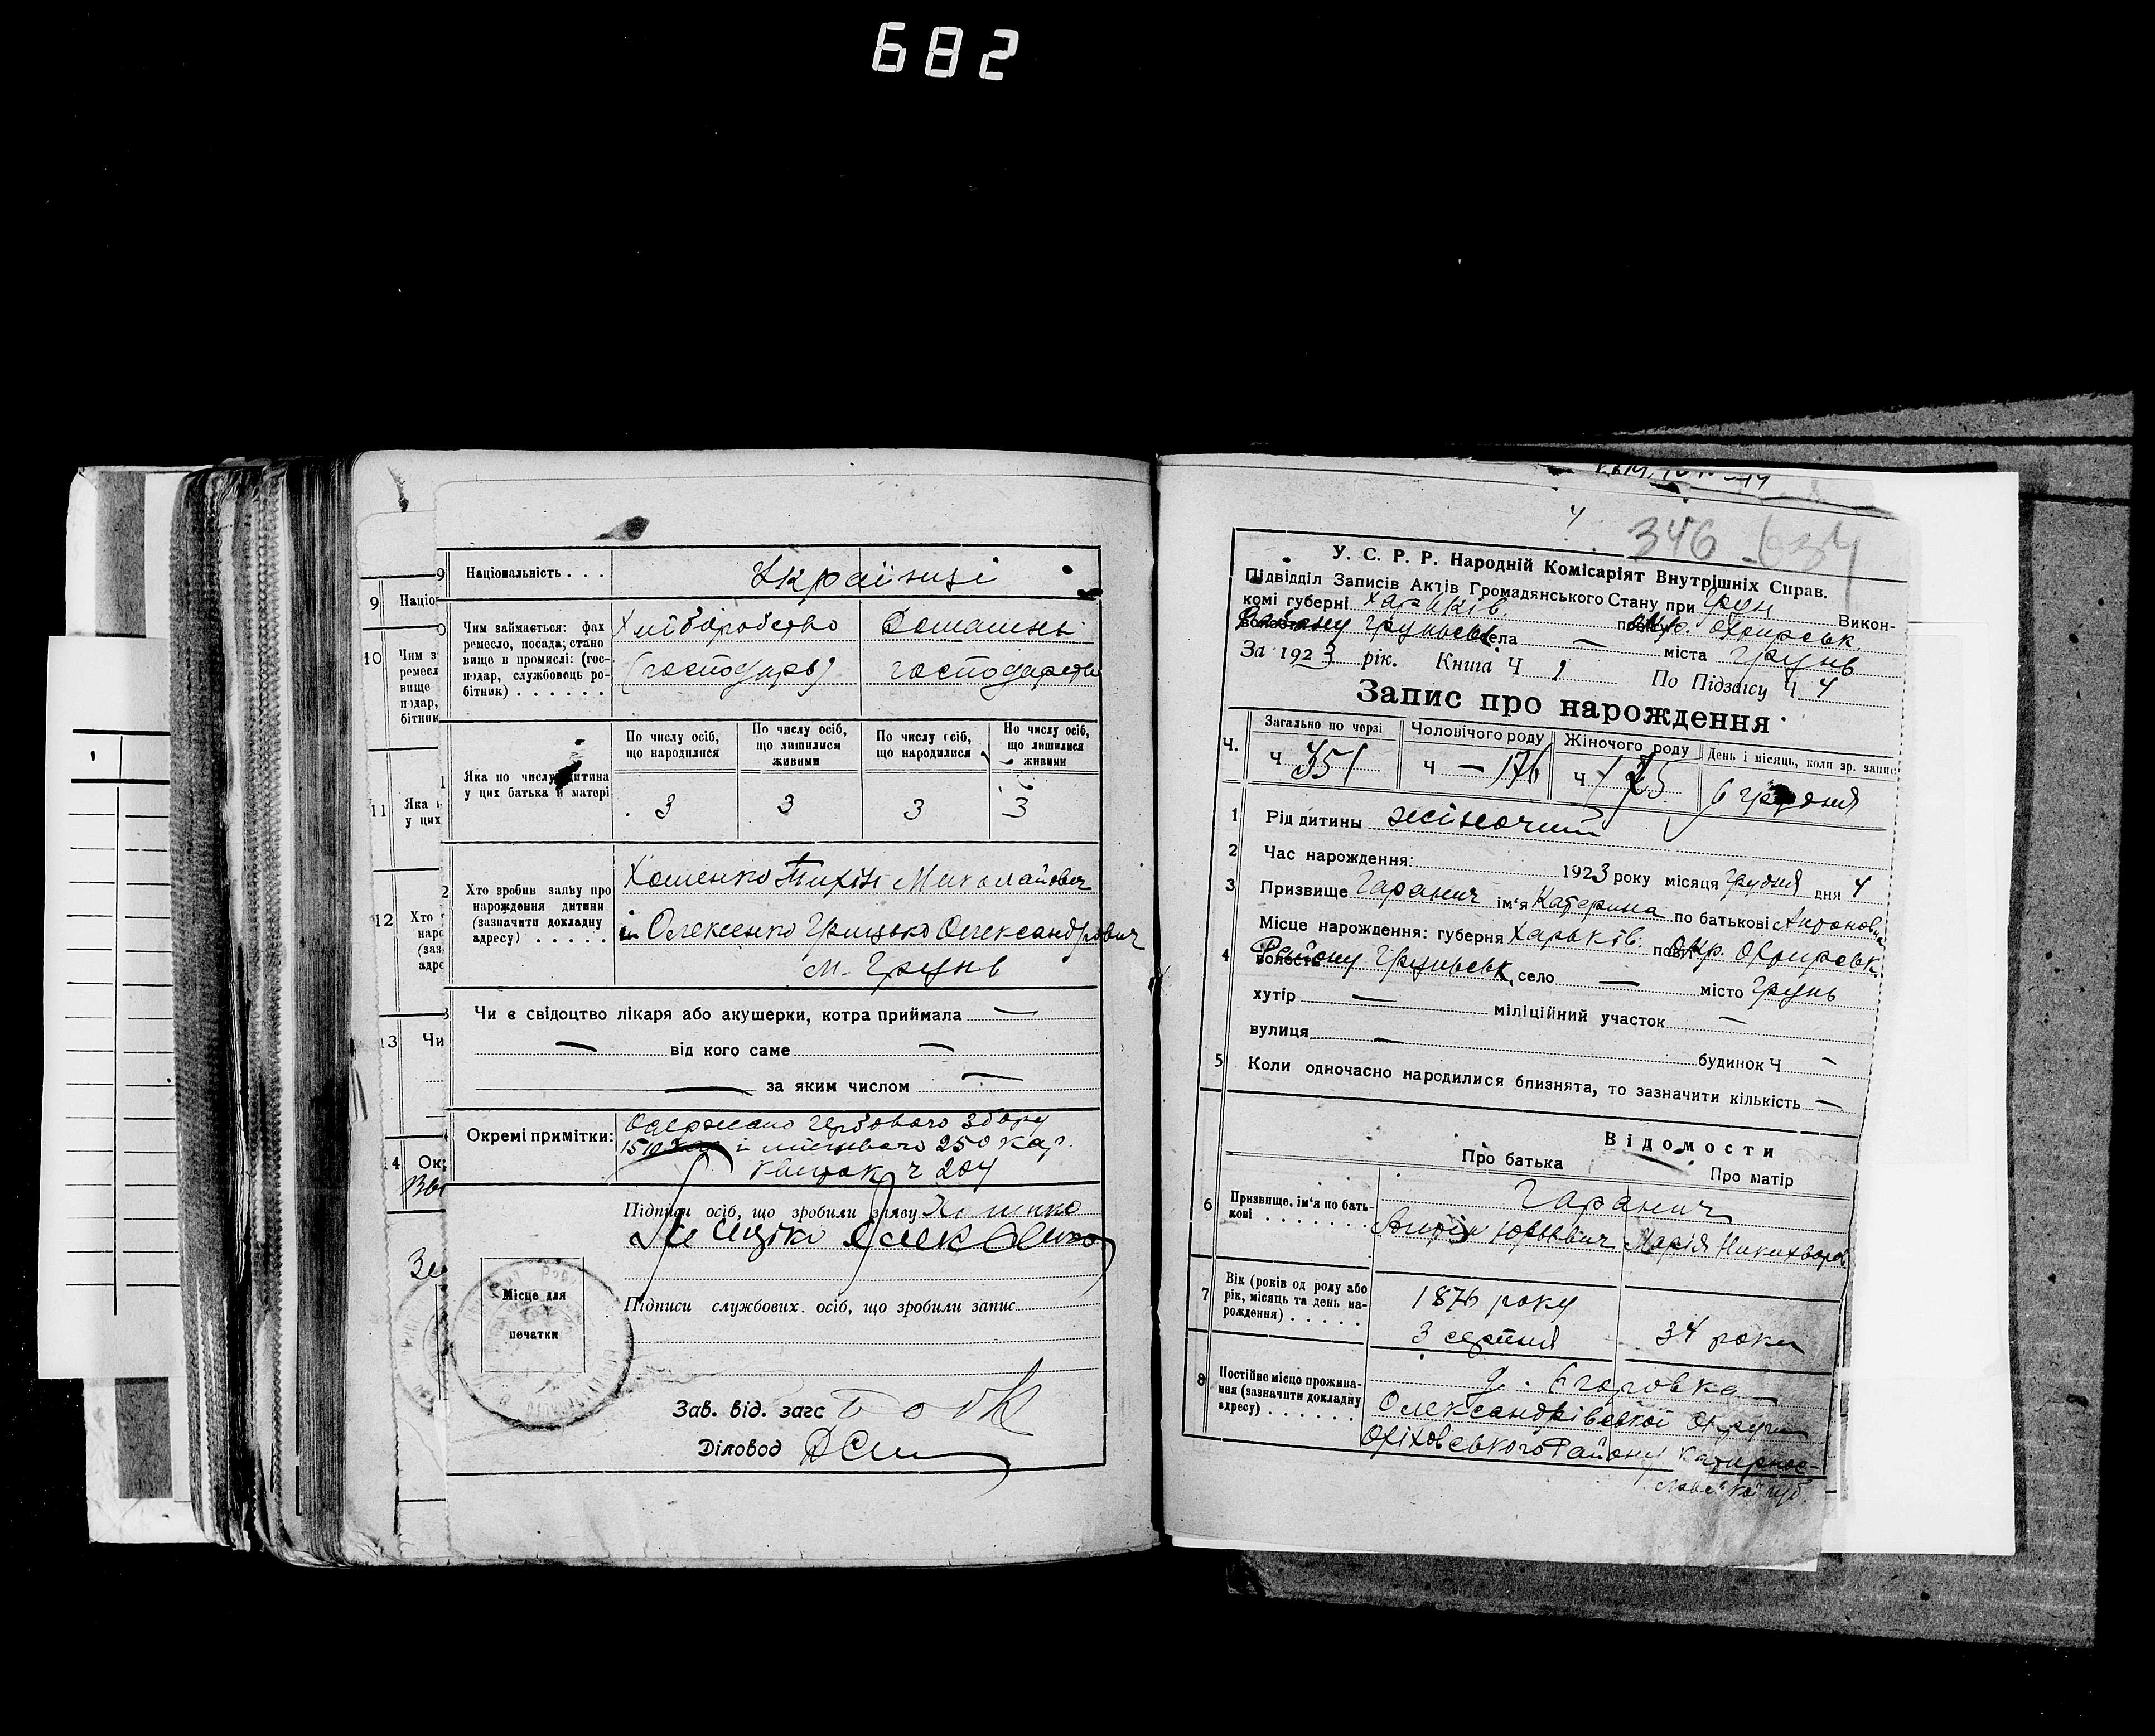 682
9 Національність . . . Українці
Чим займається: фах
ремесло, посада; стано
вище в промислі: (гос-
подар, службовець ро-
бітник) . . . . . .
Хліборобство
(господарь)
Домашнє
господарство
Яка по числу дитина
у цих батька й матері
По числу осіб,
що народилися
По числу осіб,
що лишилися
живими
По числу осіб,
що народилися
По числу осіб,
що лишилися
живими
3 3 3 3
Хто зробив заяву про
нарождення дитини
(зазначити докладну
адресу) . . . . .
Хоменко Миколайович
і Олексенко Грицько Олександрович
м. Грунь
Чи є свідоцтво лікаря або акушерки, котра приймала —
— від кого саме —
— за яким числом —
Окремі примітки:
Одержано гербового збору
і місцевого 250 кар.
квиток ч 204
Підписи осіб, що зробили заяву Хоменко
Підписи службових осіб, що зробили запис
Місце для
печатки
Зав. від. загс
Діловод
9
10
11
12
13
14
346
У. С. Р. Р. Народній Комісаріят Внутрішніх Справ.
Підвідділ Записів Актів Громадянського Стану при Виконкомі
губерні Харьків. повіту окр. Охтирськ
волости Району Груньськ села — міста Грунь
За 1923 рік. Книга Ч 1 По Підзагсу Ч 4
Запис про нарождення
Ч. Загально по черзі Чоловічого роду Жіночого роду День і місяць, коли зр. запис
ч 351 ч — 176 ч 175 6 грудня
1 Рід дитини жіночий
2 Час нарождення: 1923 року місяця грудня дня 4
3 Призвище Гаранич ім'я Катерина по батькові Антоновна
4 Місце нарождення: губерня Харьків. повіт Окр. Охтирськ
волость Району Груньськ. село — місто Грунь
хутір — міліційний участок —
вулиця — будинок Ч —
5 Коли одночасно народилися близнята, то зазначити кількість —
Відомости
Про батька Про матір
6 Призвище, ім'я по бать-
кові . . . . . . .
Гаранич
Юрьевич Марія Никихваров
7 Вік (років од роду або
рік, місяць та день на-
рождення) . . . . .
1876 року
3 серпня
34 роки
8 Постійне місце прожива-
ння (зазначити докладну
адресу) . . . . . .
Егоровка
Олександрівської Округи
Оріховського Району Катиринос-
лавської губ.